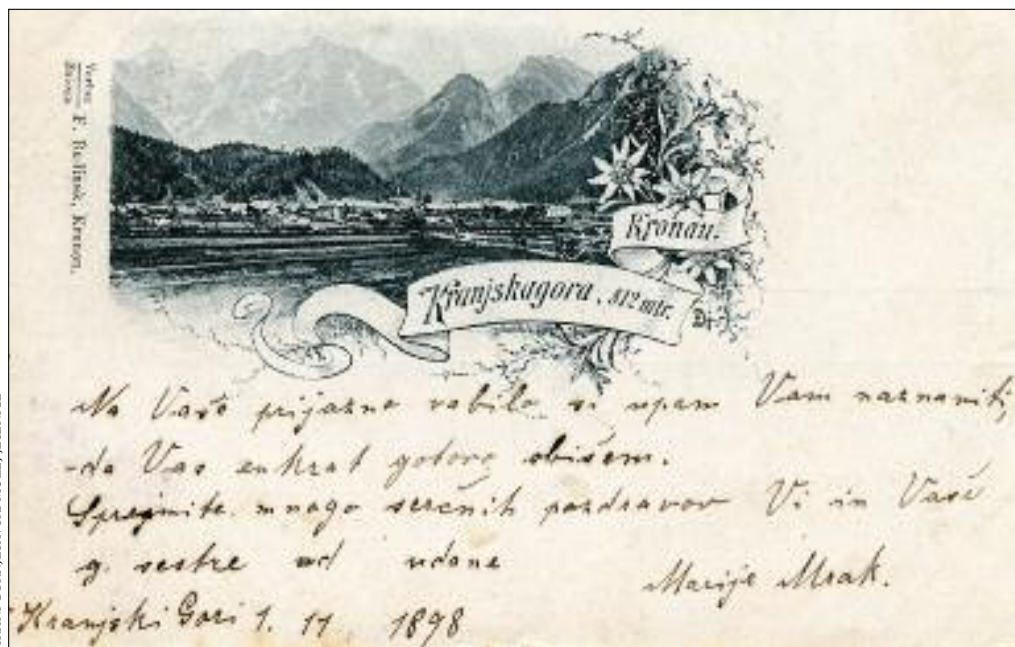 Verlag
F. Budinek, Kronau.
Kronau.
Kranjskagora, 812 mtr.
Na Vaše prijazno vabilo si upam Vam naznaniti,
-da Vas enkrat gotovo obišem.
Sprejmite mnogo serčnih pozdravov Vi in Vaše
g. sestre od udane
Marije Mrak.
Kranjski Gori 1. 11. 1898